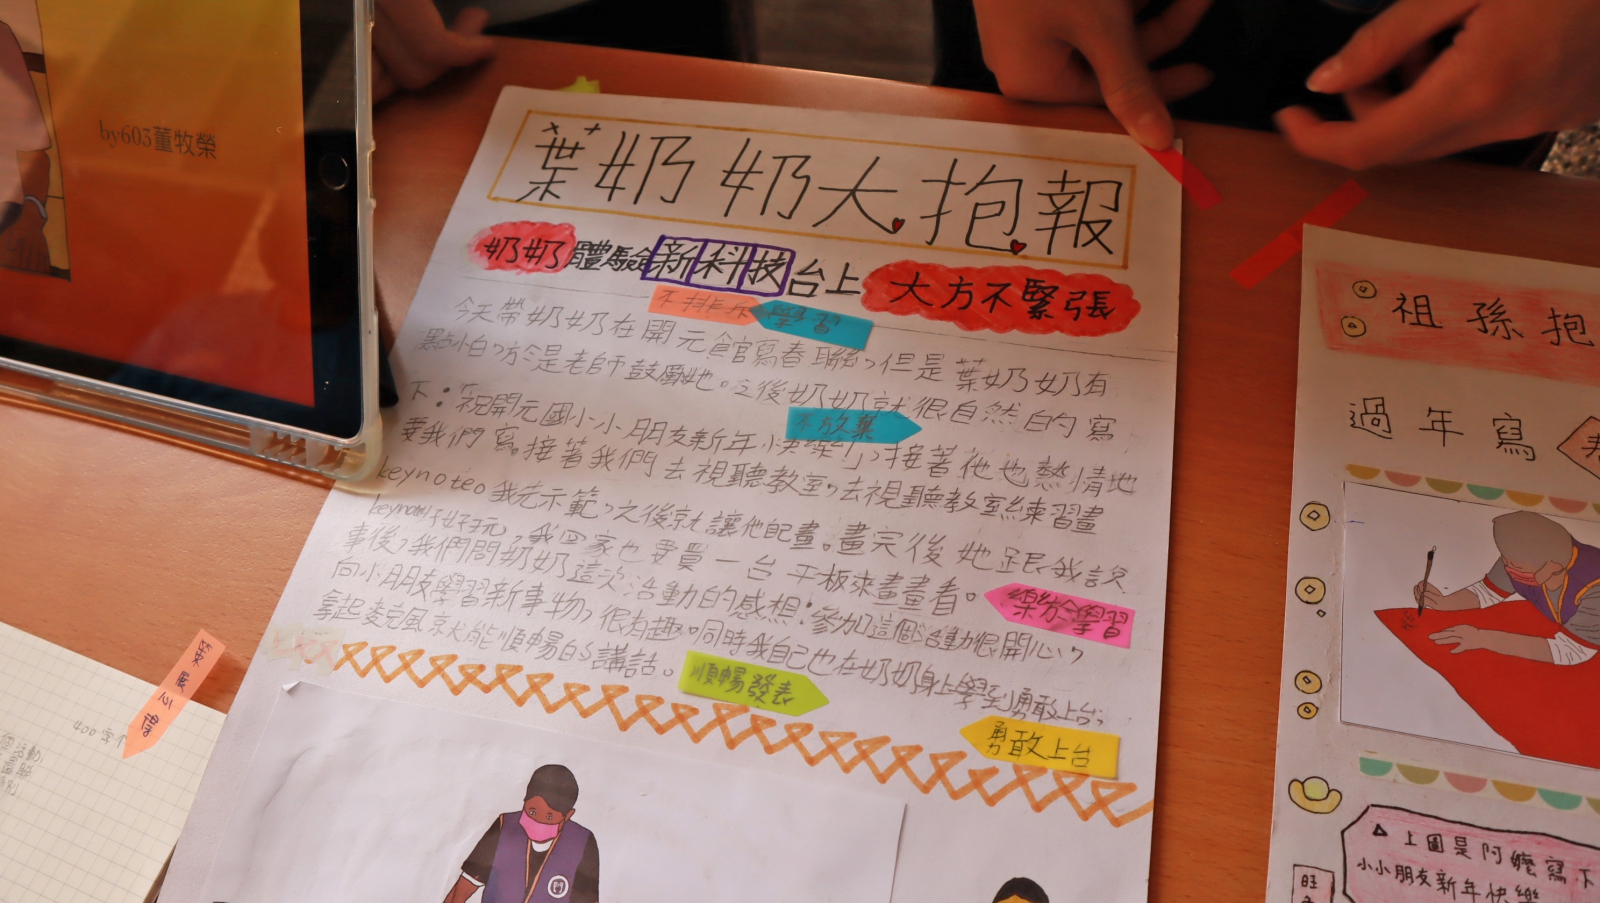 by603董牧榮
葉奶奶大抱報
奶奶體驗新科技台上大方不緊張
不排斥 學習
今天帶奶奶在開元館寫春聯,但是葉奶奶有
點怕,於是老師鼓勵她。之後奶奶就很自然的寫
不放棄
下:「祝開元國小小朋友新年快樂!」,接著他也熱情地
要我們寫。接著我們去視聽教室,去視聽教室練習畫
keynote。我先示範,之後就讓他配畫。畫完後她跟我說
keynote好好玩,我回家也要買一台平板來畫畫看。
樂於學習
事後,我們問奶奶這次活動的感想:參加這個活動很開心,
向小朋友學習新事物,很有趣。同時我自己也在奶奶身上學到勇敢上台,
拿起麥克風就能順暢的講話。
順暢發表
勇敢上台
400字
祖孫抱
過年寫
上圖是阿嬤寫下
小小朋友新年快樂
旺